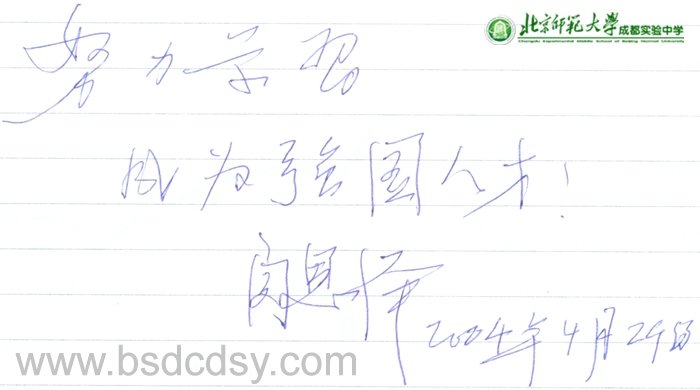 北京师范大学成都实验中学
Chengdu Experimental Middle School of Beijing Normal University
努力学习
成为强国人才!
闵恩泽
2004年4月29日
www.bsdcdsy.com